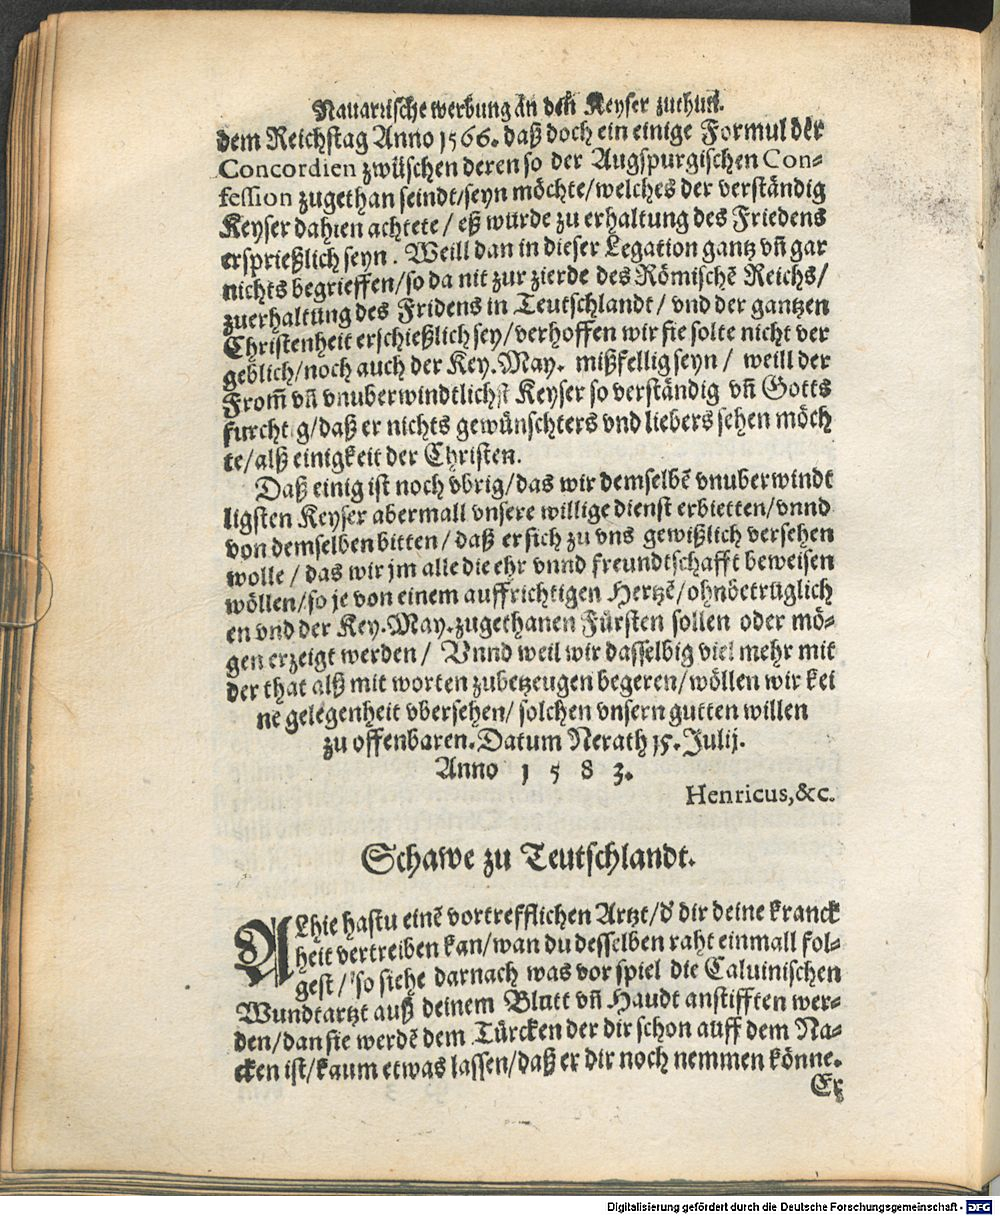 Nauarrische werbung an den Keyser zuthun.
dem Reichstag Anno 1566. daß doch ein einige Formul der
Concordien zwüschen deren so der Augspurgischen Con-
fession zugethan seindt/seyn möchte/welches der verständig
Keyser dahien achtete/ eß wurde zu erhaltung des Friedens
ersprießlich seyn. Weill dan in dieser Legation gantz vn̄ gar
nichts begrieffen/so da nit zur zierde des Römischē Reichs/
zuerhaltung des Fridens in Teutschlandt/ vnd der gantzen
Christenheit erschießlich sey/verhoffen wir sie solte nicht ver
geblich/noch auch der Key.May. mißfellig seyn/ weill der
From̄ vn̄ vnuberwindtlichst Keyser so verständig vn̄ Gotts
furcht g/daß er nichts gewünschters vnd liebers sehen möch
te/alß einigkeit der Christen.
Daß einig ist noch vbrig/das wir demselbē vnuberwindt
ligsten Keyser abermall vnsere willige dienst erbietten/vnnd
von demselben bitten/ daß er sich zu vns gewißlich versehen
wolle/ das wir jm alle die ehr vnnd freundtschafft beweisen
wöllen/so je von einem auffrichtigen Hertzē/ohnbetrüglich
en vnd der Key.May.zugethanen Fürsten sollen oder mö-
gen erzeigt werden/ Vnnd weil wir dasselbig viel mehr mit
der that alß mit worten zubetzeugen begeren/wöllen wir kei
ne gelegenheit vbersehen/ solchen vnsern gutten willen
zu offenbaren. Datum Nerath 15. Julij.
Anno 1583.
Henricus,&c.
Schawe zu Teutschlandt.
ALhie hastu einē vortrefflichen Artzt/d' dir deine kranck
heit vertreiben kan/wan du desselben raht einmall fol-
gest/ so siehe darnach was vor spiel die Caluinischen
Wundtartzt auß deinem Blutt vn̄ Haudt anstifften wer-
den/dan sie werdē dem Türcken der dir schon auff dem Na-
cken ist/kaum etwas lassen/daß er dir noch nemmen könne.
Er
Digitalisierung gefördert durch die Deutsche Forschungsgemeinschaft - DFG